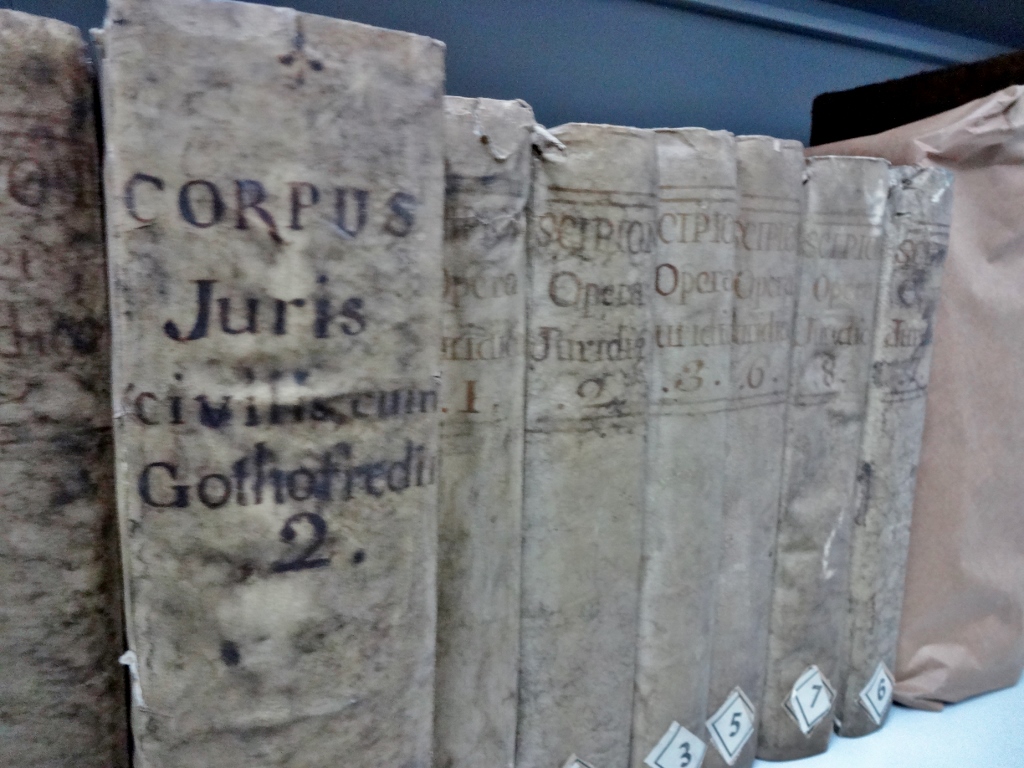 CORPUS
Juris
civilis, cum
Gothofredi
2.
Opera
.1.
SCIPION
Opera
Juridic
.2.
CIPIO
Opera
uridi
.3.
CIPIO
Opera
.6.
SCIPIO
Oper
Juridic
8.
3
5
7
6